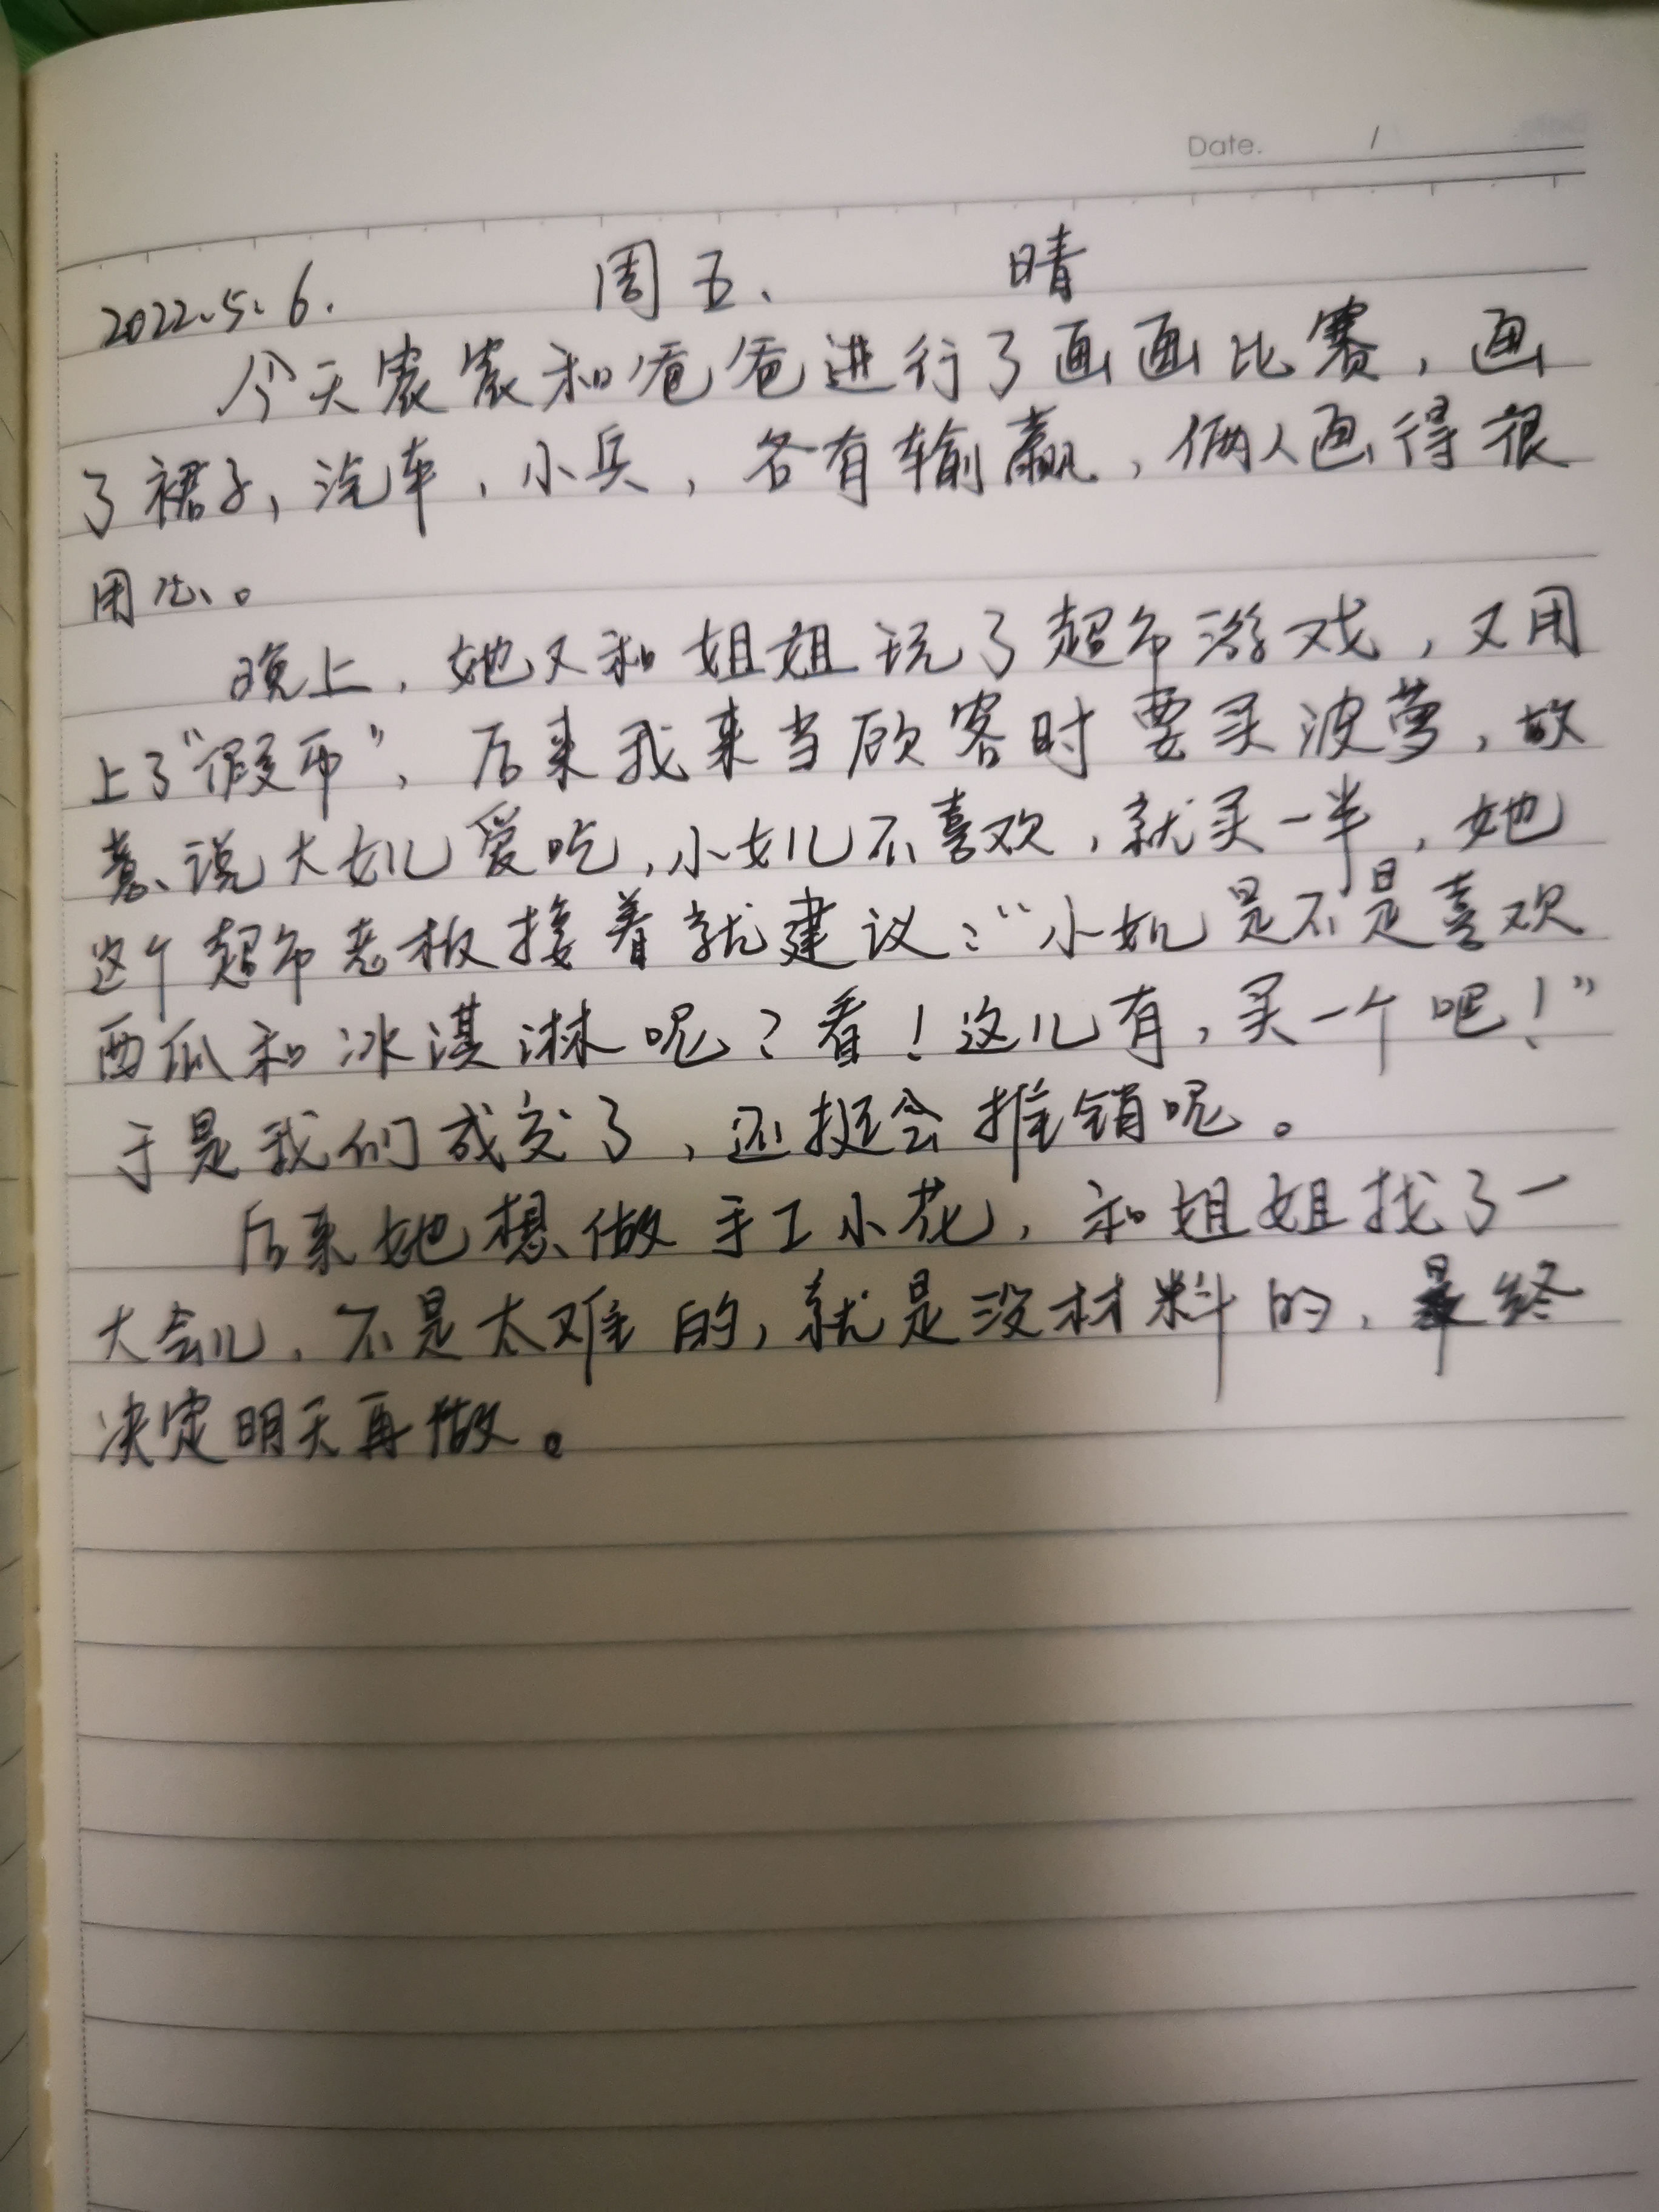 Date. /
2022.5.6. 周五、 晴
今天宸宸和爸爸进行了画画比赛，画
了裙子，汽车，小兵，各有输赢，俩人画得很
用心。
晚上，她又和姐姐玩了超市游戏，又用
上了“假币”，后来我来当顾客时要买波萝，故
意说大女儿爱吃，小女儿不喜欢，就买一半，她
这个超市老板接着就建议：“小女儿是不是喜欢
西瓜和冰淇淋呢？看！这儿有，买一个吧！”
于是我们成交了，还挺会推销呢。
后来她想做手工小花，和姐姐找了一
大会儿，不是太难的，就是没材料的，最终
决定明天再做。